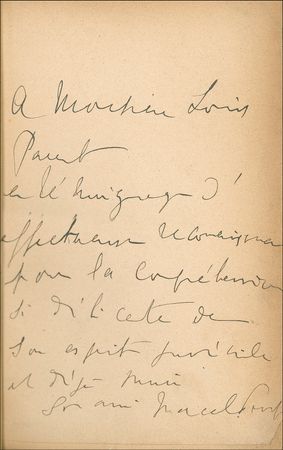 A Monsieur Louis
Parent
en témoignage d'
affectueuse reconnaissance
pour la compréhension
si délicate de
son esprit juvénile
et déjà muri
Son ami Marcel Proust